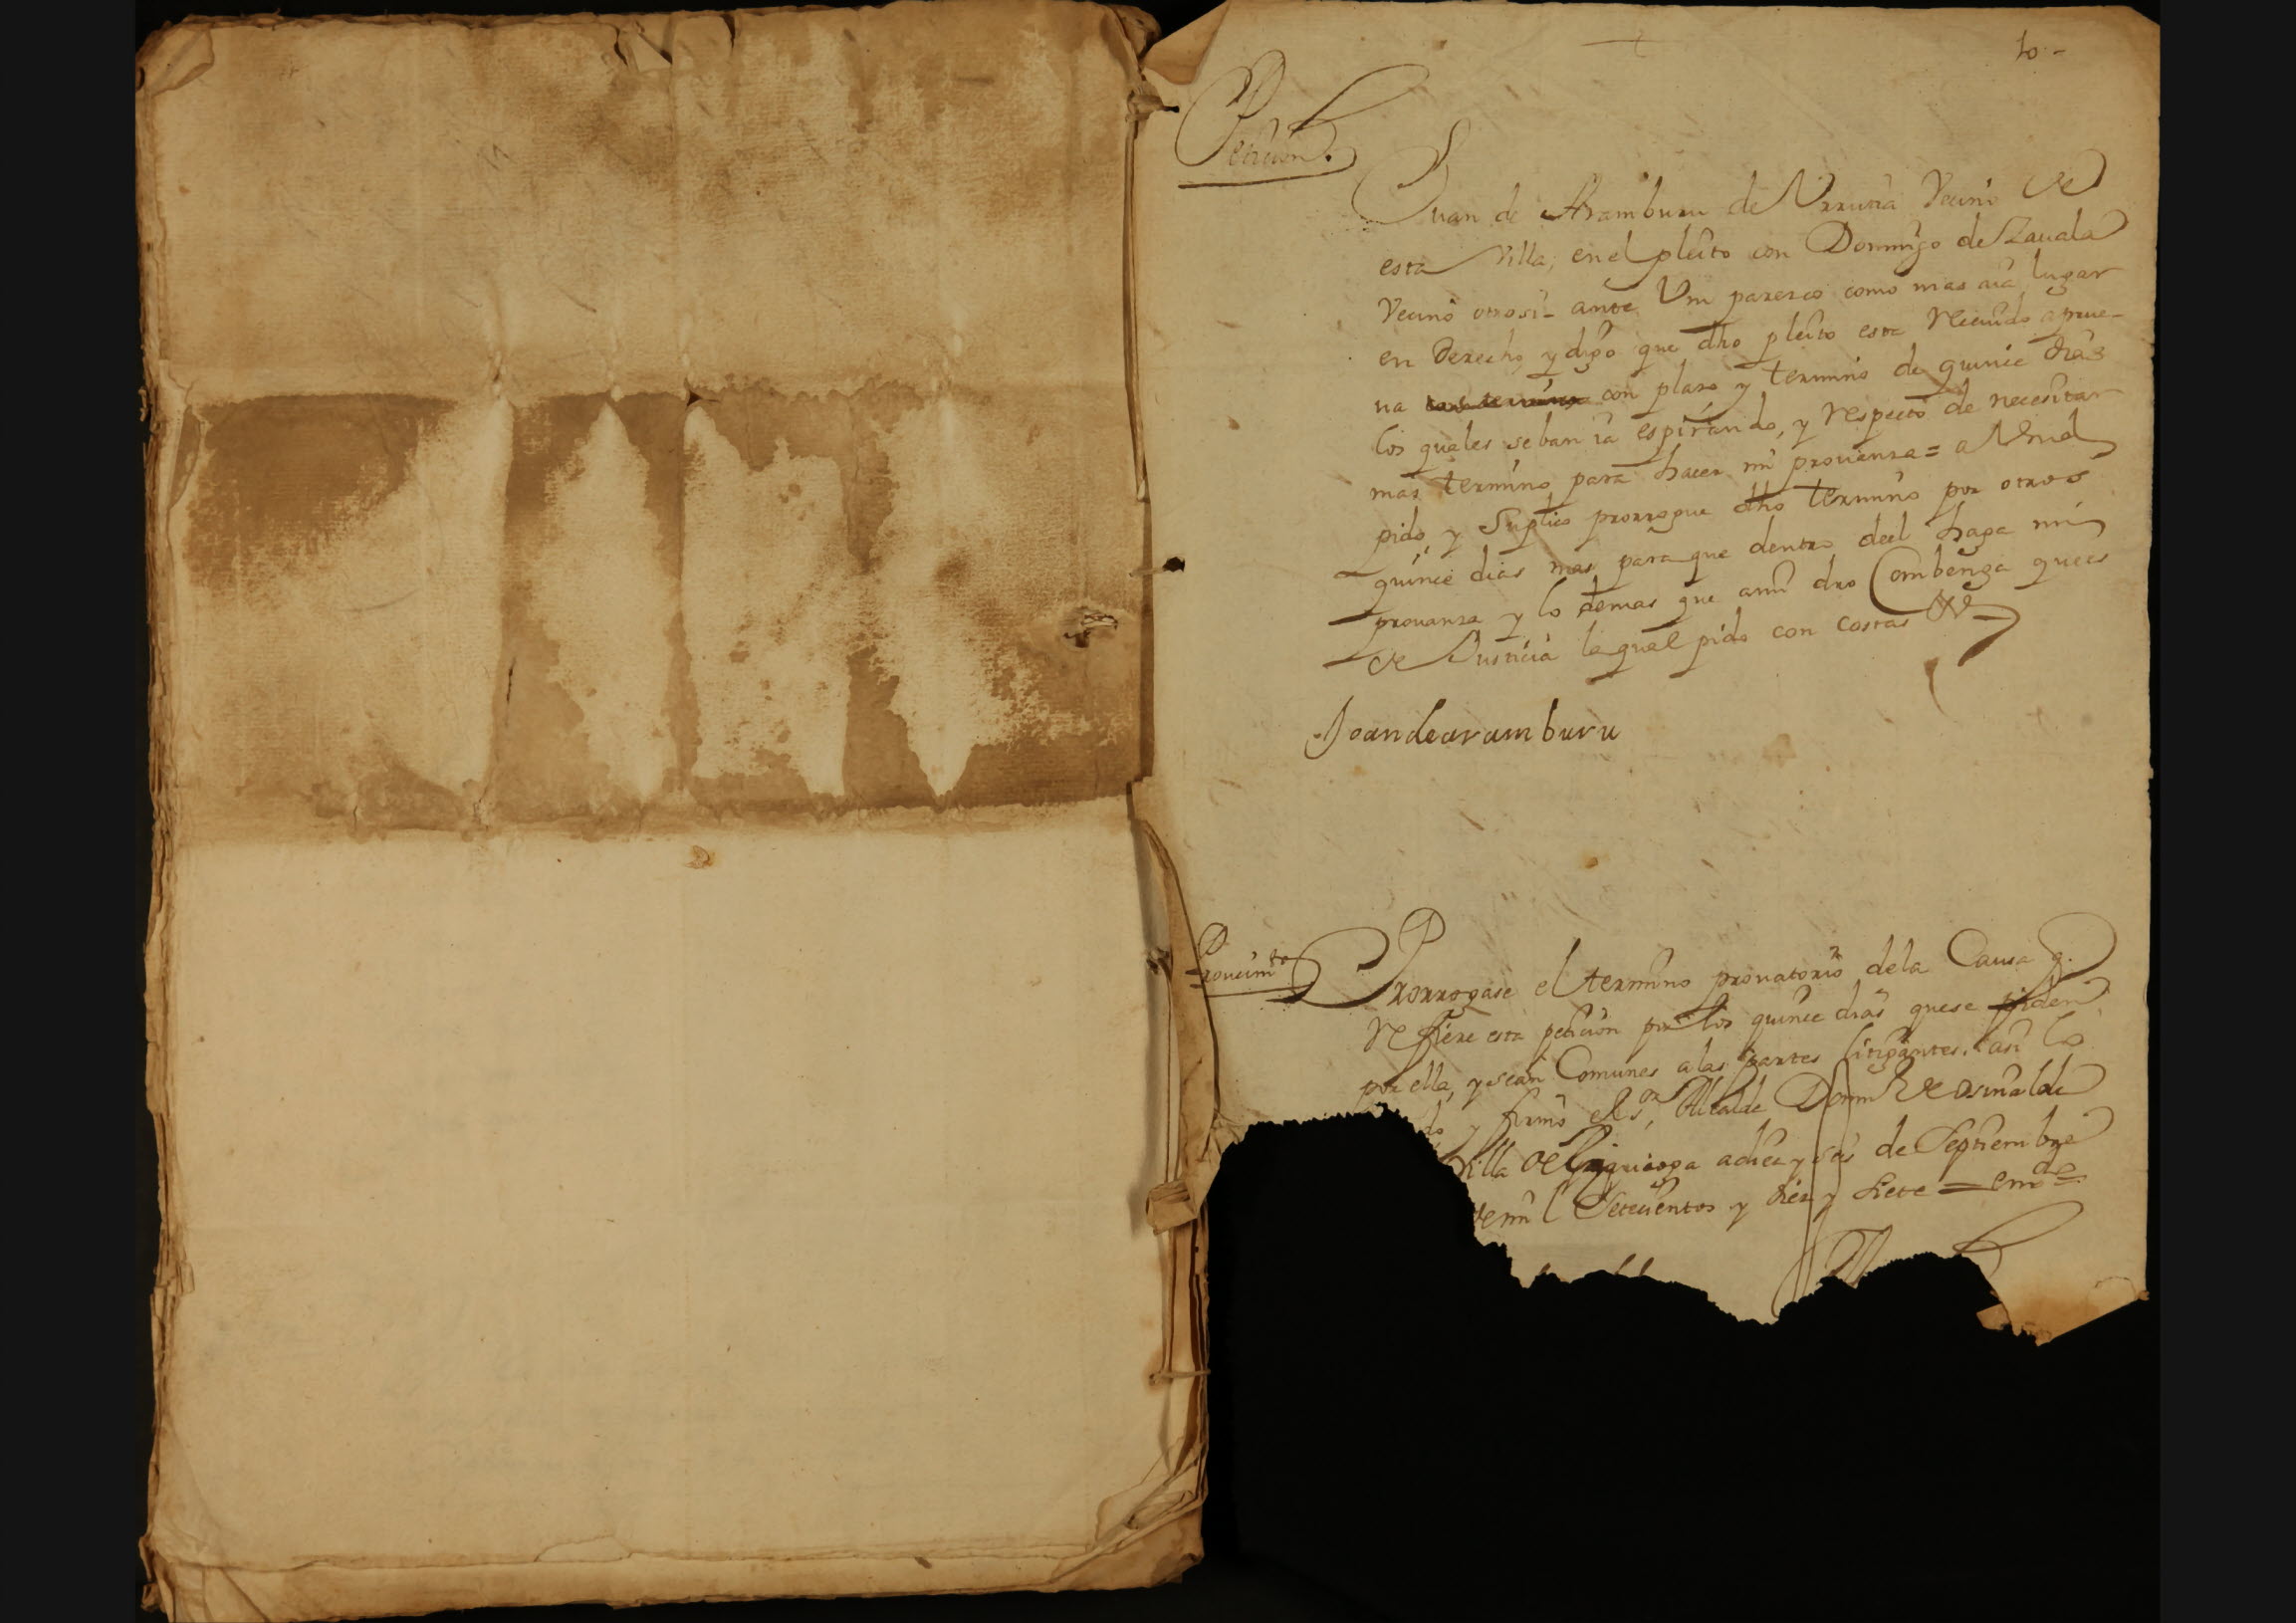 10-
Peticion.
Juan de Aramburu de Vrrutia Vecino de
esta Villa, en el pleito con Domingo de Zauala
Vecino otrosi- ante Vm paresco como mas aia lugar
en Derecho, y digo que dho pleito esta Receuido a prue-
ua con plazo y termino de quince dias
los quales se ban ia espirando, y respecto de necesitar
mas termino para hacer mi prouanza = a Vmd
pido, y Suplico prorrogue dho termino por otros
quince dias mas para que dentro deel haga mi
prouanza y lo demas que ami dro Combenga que es
de Justicia la qual pido con costas
Joandearamburu
Proueimto
Prorrogase el termino prouatorio dela Causa q.
Refiere esta peticion por los quince dias quese piden
por ella, y sean Comunes alas partes litigantes. asi lo
y firmo el Sor Alcalde Domin de osinalde
Villa de a diez y seis de Septiembre
de mil Setecientos y diez y siete = emdo =